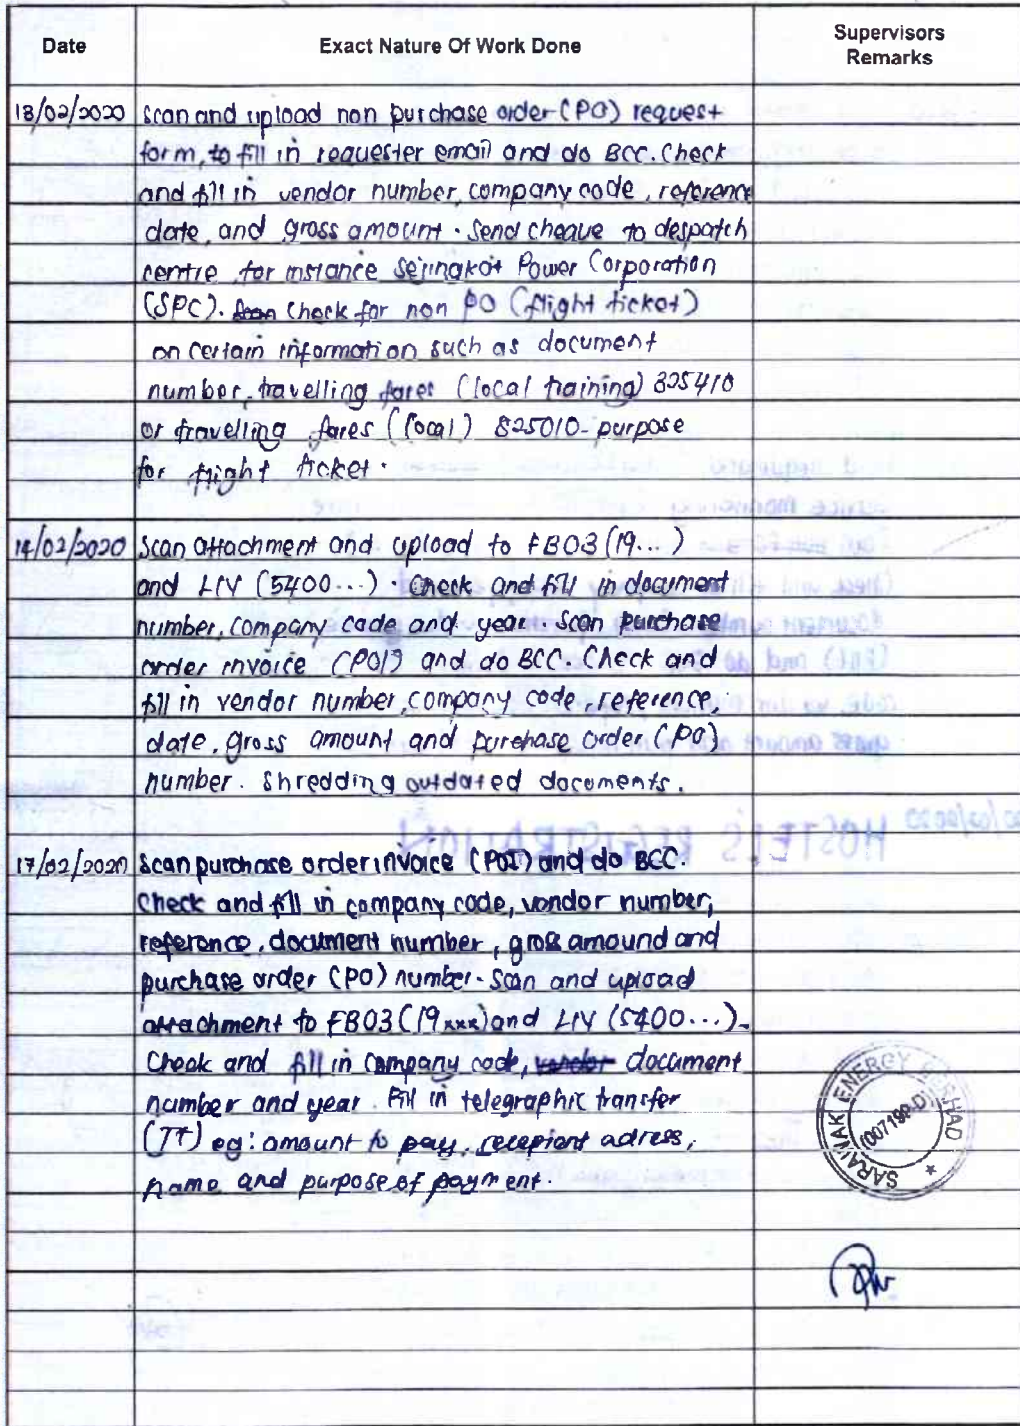 Date Exact Nature Of Work Done Supervisors Remarks
13/02/2020 Scan and upload non purchase order (PO) request
form, to fill in requester email and do BCC. Check
and fill in vendor number, company code, reference
date, and gross amount. Send cheque to despatch
centre for instance Sejingkat Power Corporation
(SPC). Check for non PO (flight ticket)
on certain information such as document
number, travelling fares (local training) 825410
or travelling fares (local) 825010 - purpose
for flight ticket.
14/02/2020 Scan attachment and upload to FB03 (19...)
and LIV (5400...). Check and fill in document
number, company code and year. Scan purchase
order invoice (POI) and do BCC. Check and
fill in vendor number, company code, reference,
date, gross amount and purchase order (PO)
number. Shredding outdated documents.
17/02/2020 Scan purchase order invoice (POI) and do BCC.
Check and fill in company code, vendor number,
reference, document number, gross amound and
purchase order (PO) number. Scan and upload
attachment to FB03 (19xxx) and LIV (5400...).
Check and fill in company code, vendor document
number and year. Fill in telegraphic transfer
(TT) eg: amount to pay, recepient adress,
name and purpose of payment.
SARAWAK ENERGY BERHAD
(007199-D)